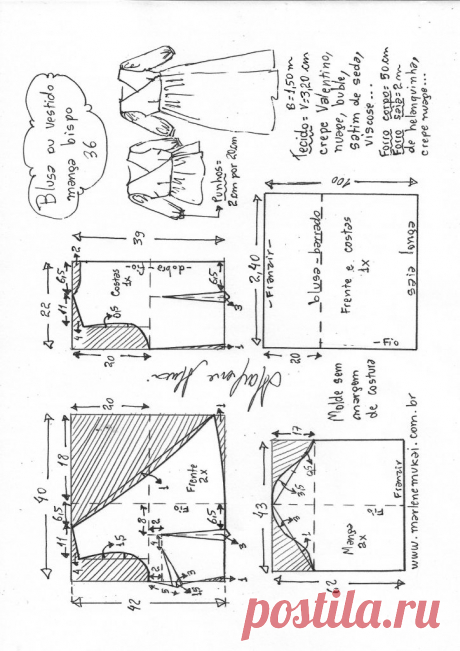 Blusa ou vestido
manga bispo
36
Punhos=
2cm por 20cm
Tecido=
B=1,50m
V=3,20cm
crepe Valentino,
nuage, buble,
satim de seda,
viscose...
Forro corpo=50cm
Forro saia=2m
de helanquinha,
crepe nuage...
22
11
6,5
2
4
0,5
20
Costas
1x
Fio
dobra
39
6,5
3
1
2,40
-Franzir-
100
blusa=barrado
20
Frente e costas
1x
Fio
saia longa
Marlene Mukai
Molde sem
margem
de costura
www.marlenemukai.com.br
40
11
6,5
18
20
4
1,5
1
Frente
2x
Fio
8
2
2
5
3
1,5
6,5
3
1
1
42
43
17
1
3,5
0,5
Fio
Manga
2x
Franzir
62
postila.ru